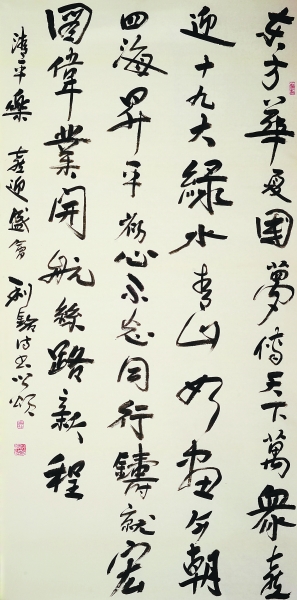 东方華夏夢傳天下萬衆喜
迎十九大緑水青山如畫今朝
四海昇平初心不忘同行鑄就宏
圖偉業開航絲路新程
清平樂 喜迎盛會